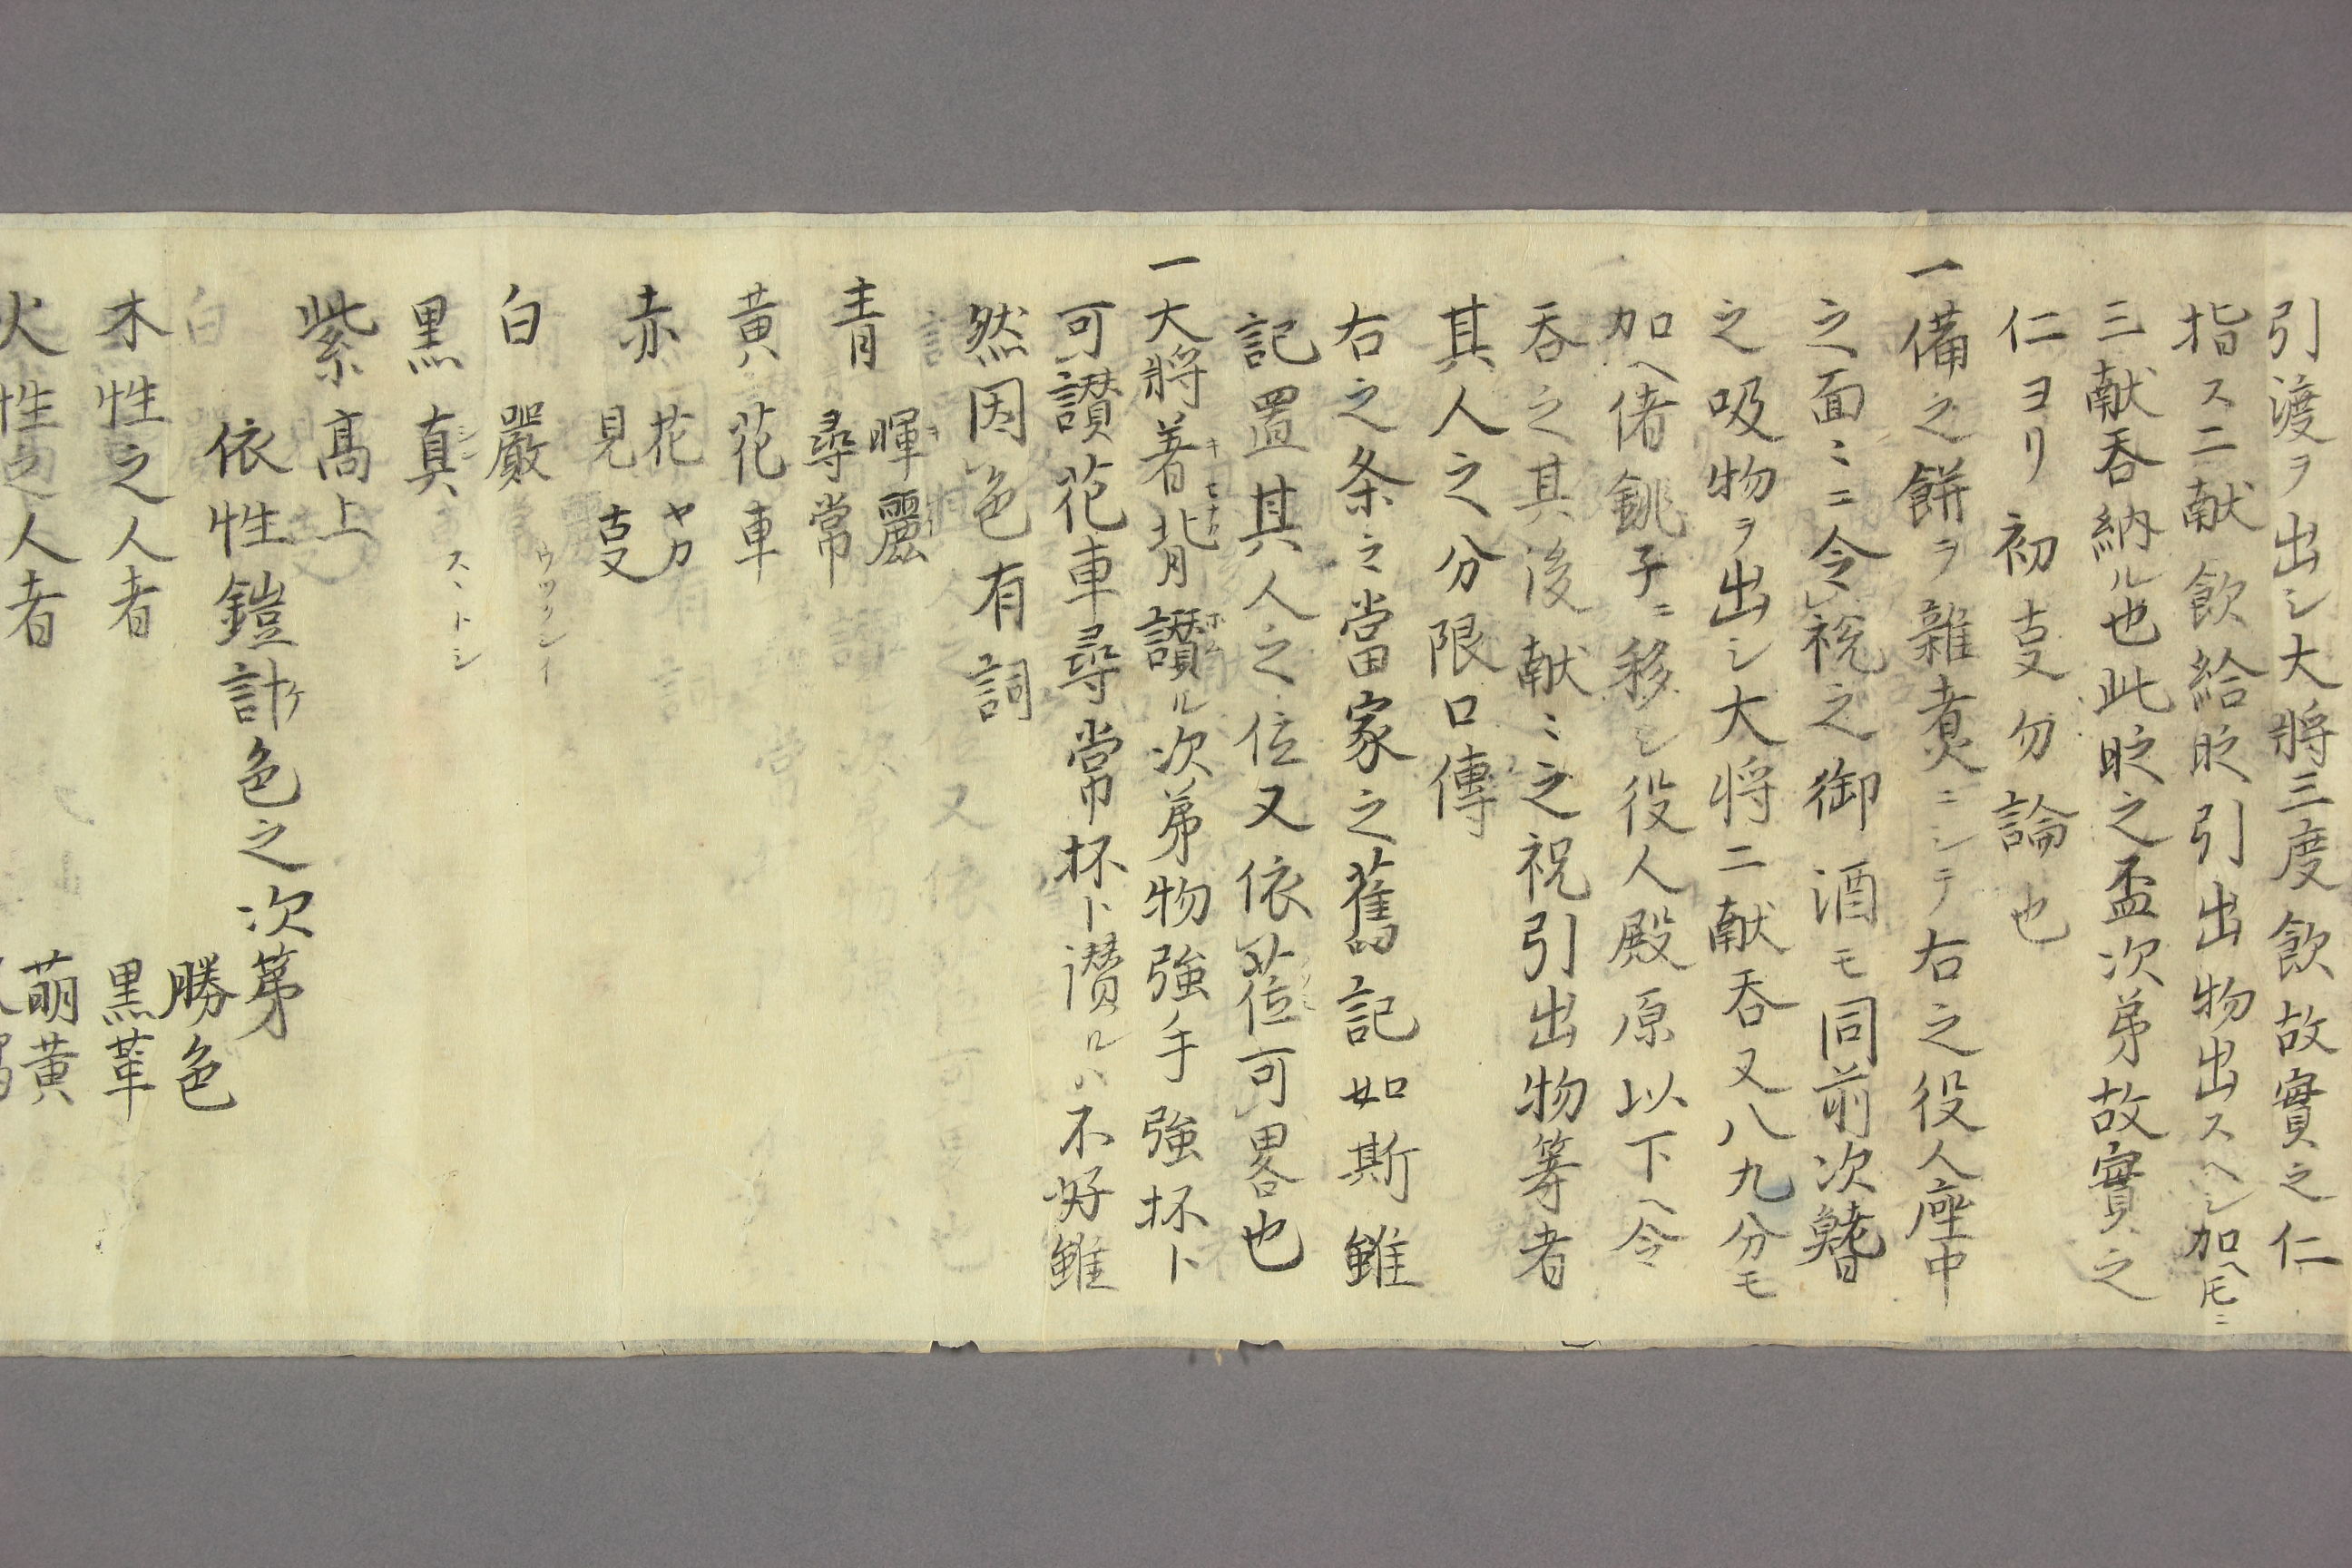 引渡ヲ出シ大將三度飲故實之仁
指ス二献飲給時引出物出スヘシ加ヘ尾ニ
三献吞納ル也此時之盃次第故實之
仁ヨリ初叓勿論也
一備之餅ヲ雜煮ニシテ右之役人座中
之面〻ニ令祝之御酒モ同前次鰭
之吸物ヲ出シ大将二献吞又八九分モ
加ヘ偖銚子ニ移シ役人殿原以下ヘ令
吞之其後献〻之祝引出物等者
其人之分限口傳
右之条〻當家之舊記如斯雖
記置其人之位又依莅可畧也
一大將著背讃ル次第物強手強抔ト
可讃花車尋常抔ト讃ルハ不好雖
然因色有詞
青 暉麗
尋常
黄 花車
赤 花ヤカ
見叓
白 嚴 ウツクシイ
黒 真 スヽトシ
紫 髙上
依性鎧計色之次第
勝色
木性之人者 黒革
萌黄
火性之人者